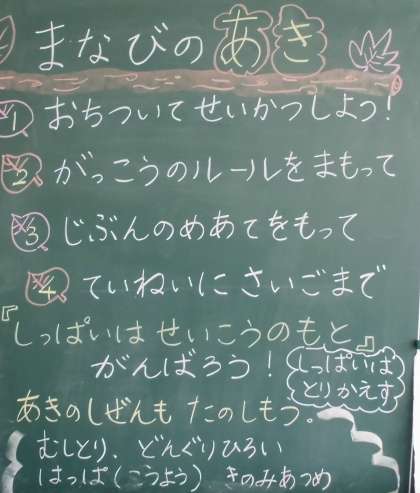 まなびのあき
1 おちついてせいかつしよう!
2 がっこうのルールをまもって
3 じぶんのめあてをもって
4 ていねいにさいごまで
『しっぱいはせいこうのもと』
がんばろう!
しっぱいは
とりかえす
あきのしぜんもたのしもう。
むしとり、どんぐりひろい
はっぱ(こうよう) きのみあつめ